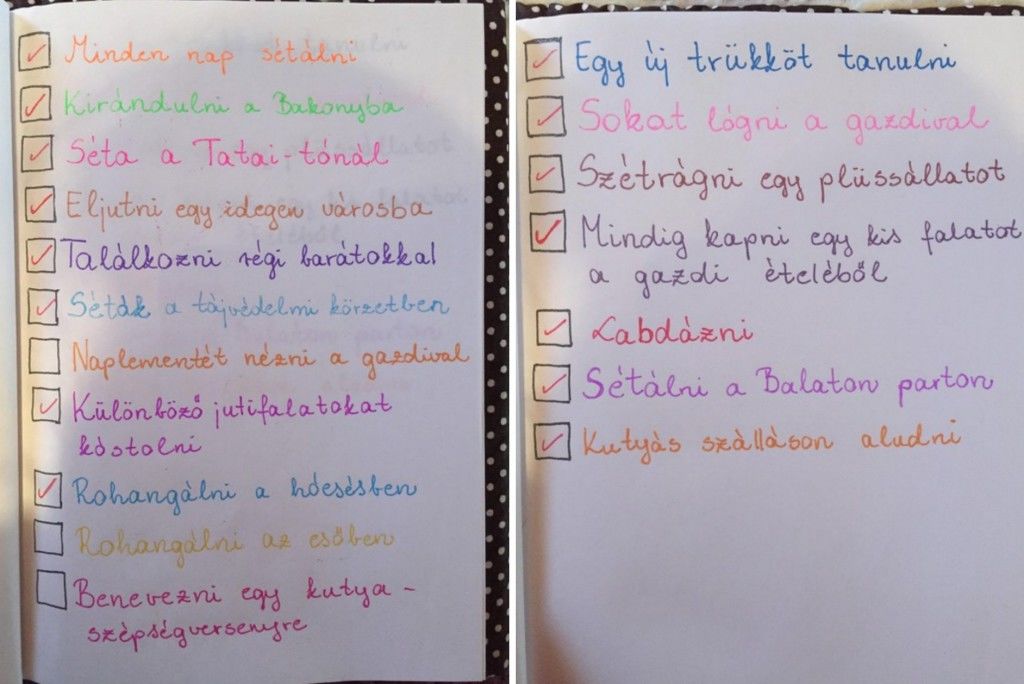 Minden nap sétálni
Kirándulni a Bakonyba
Séta a Tatai-tónál
Eljutni egy idegen városba
Találkozni régi barátokkal
Séták a tájvédelmi körzetben
Naplementét nézni a gazdival
Különböző jutifalatokat
kóstolni
Rohangálni a hóesésben
Rohangálni az esőben
Benevezni egy kutya-
szépségversenyre
Egy új trükköt tanulni
Sokat lógni a gazdival
Szétrágni egy plüssállatot
Mindig kapni egy kis falatot
a gazdi ételéből
Labdázni
Sétálni a Balaton parton
Kutyás szálláson aludni